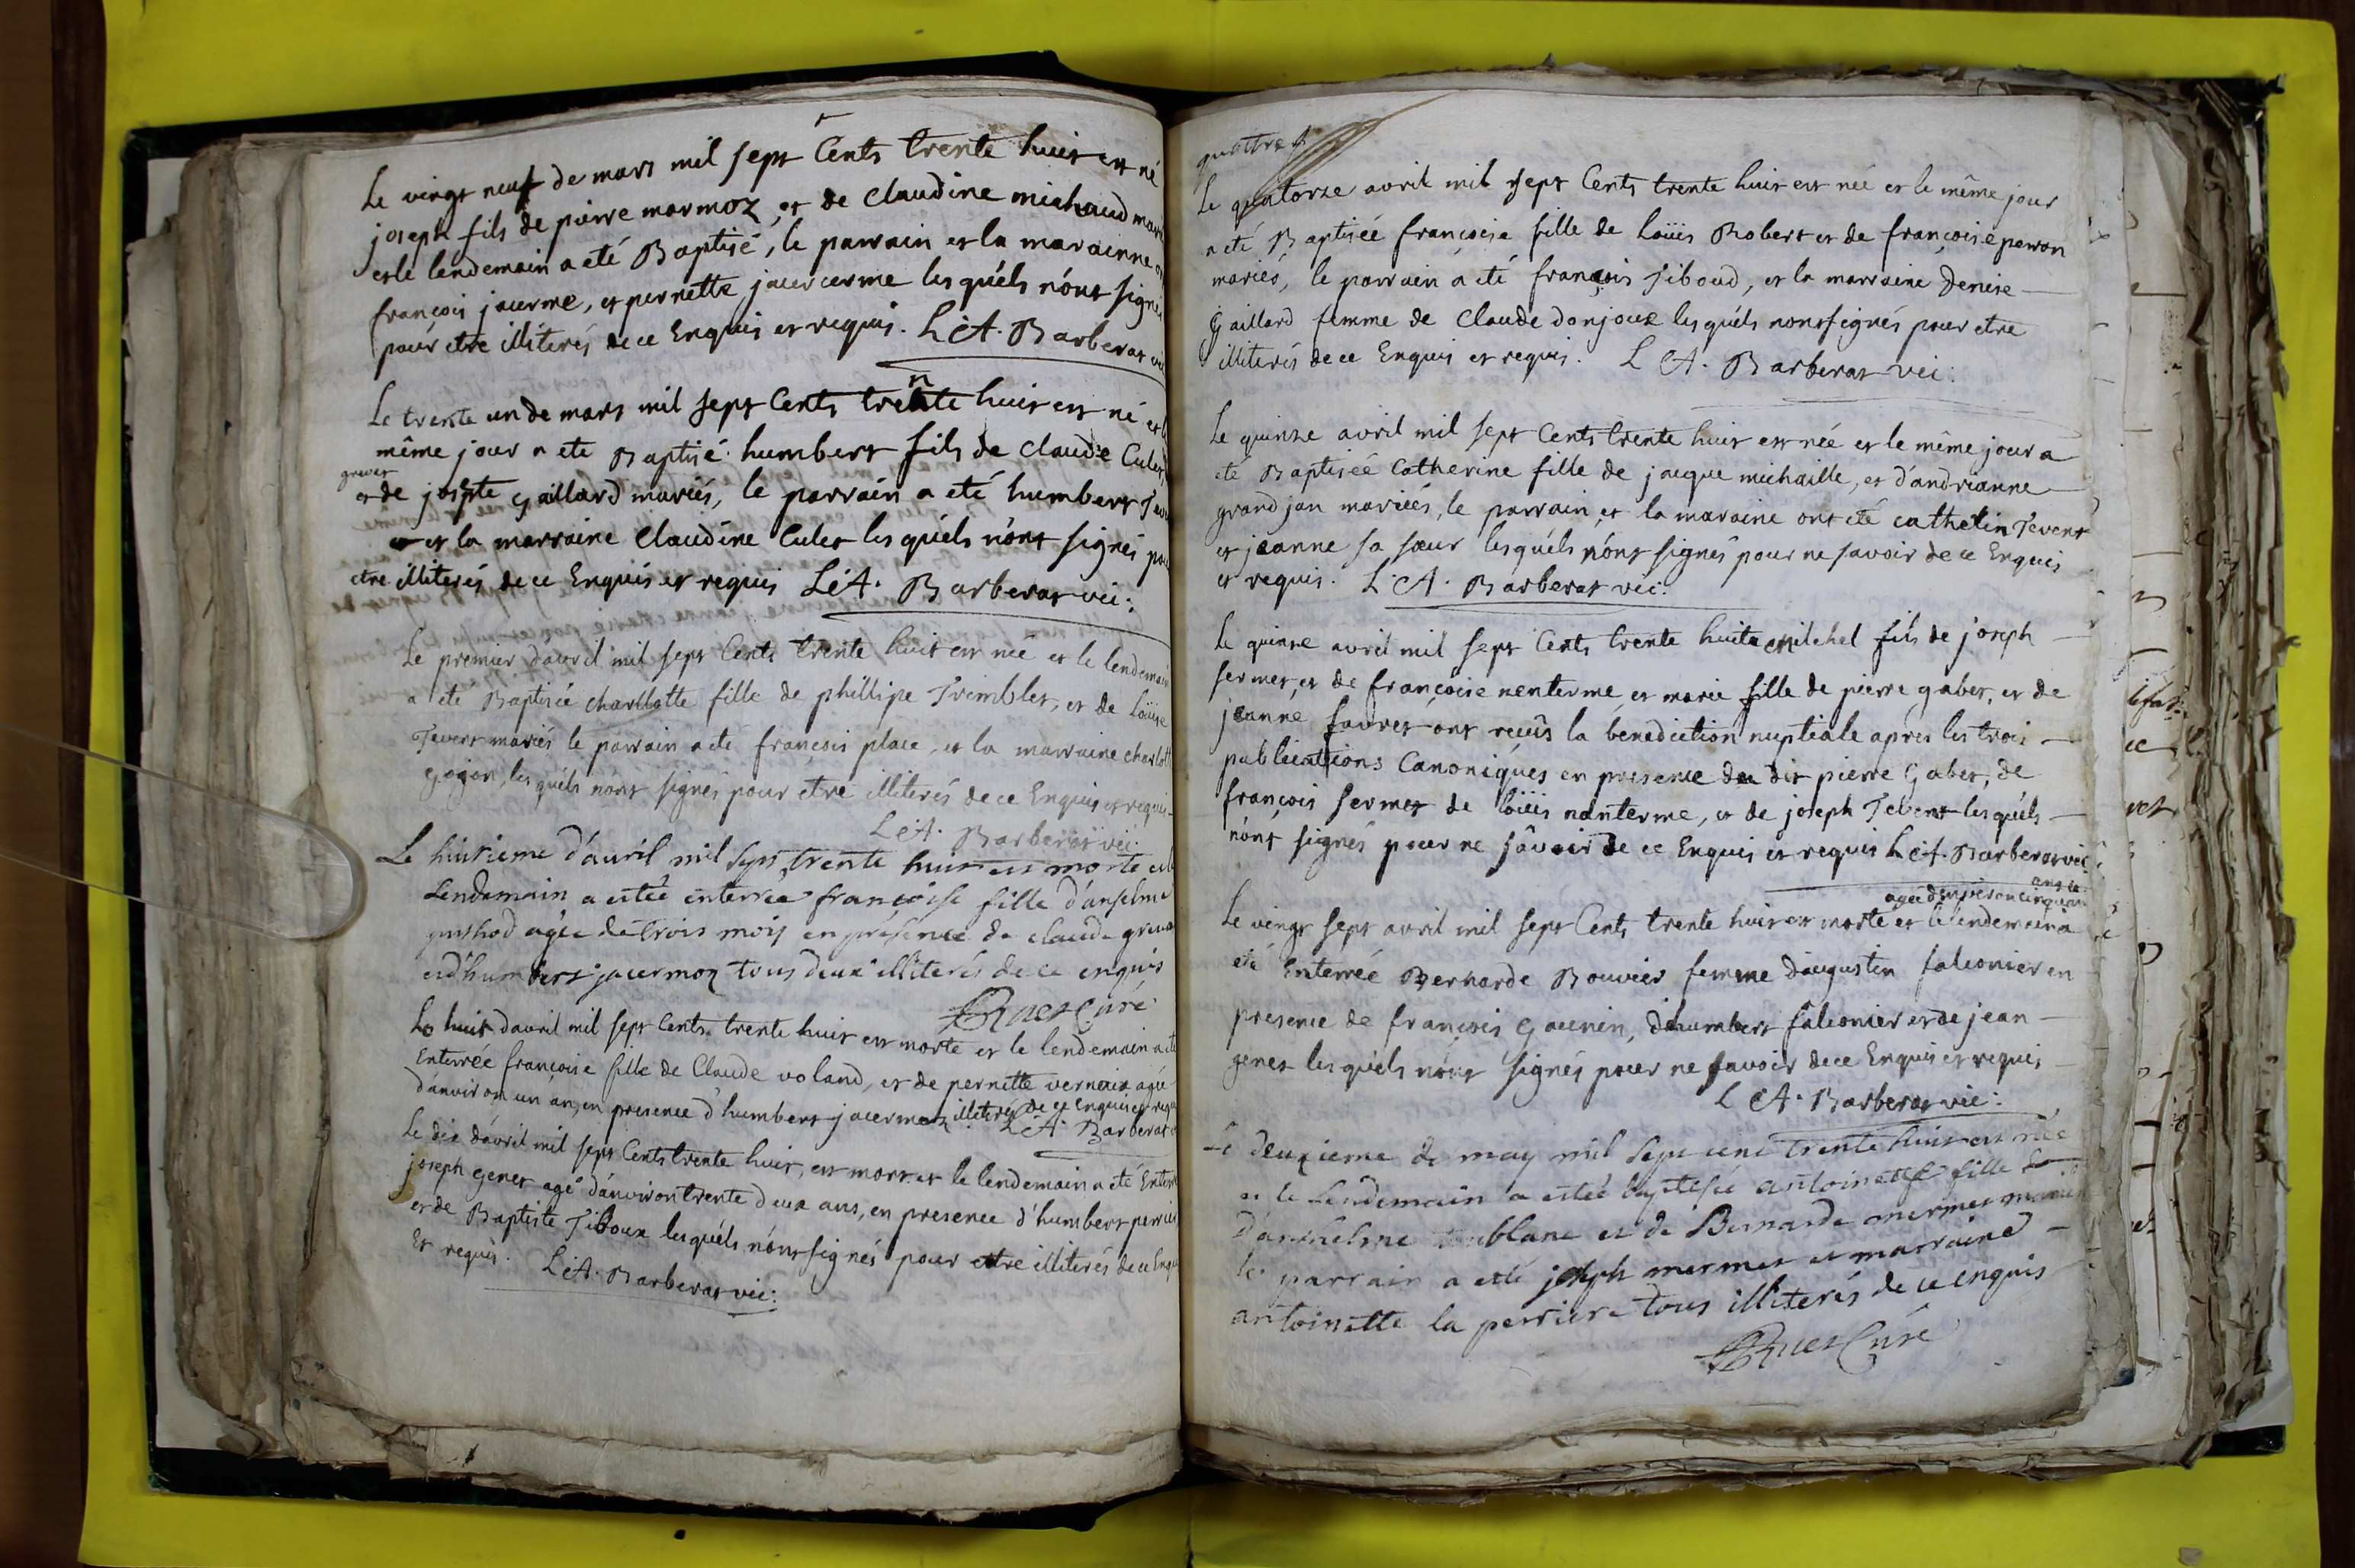 Le vingt neuf de mars mil sept Cents trente huit est né
joseph fils de pierre marmoz, et de Claudine michaud mari
et le lendemain a eté Baptisé, le parrain et la marainne
françois jacerme, et pernette jacercerme lesquéls nónt signé
pour etre illiterés de ce Enquis et requis. L.A. Barberat vic
Le trente un de mars mil sept Cents trente huit est né et le
n
même jour a ete Baptisé humbert fils de Claude Culet
et de josepte gaillard mariés, le parrain a eté humbert
gruvet
et la marraine Claudine Culet lesquéls nónt signés pour
etre illiterés de ce Enquis et requis L.A. Barberat vic:
Le premier d'avril mil sept Cents trente huit est née et le lendemain
a ete Baptisée charllotte fille de phillipe Trimblet, et de Loüise
Tevert mariés le parrain a eté françois place, et la marraine charlott
gojon, lesquéls nónt signés pour etre illiterés de ce Enquis et requis
L.A. Barberat vic:
Le huitieme d'avril mil sept trente huit est morte et le
Lendemain a estée enterrée françoise fille d'anselme
agée de trois mois en présence de claude
et d'humbert jacermoz tous deux illiterés de ce enquis
Curé
Le huit d'avril mil sept Cents trente huit est morte et le lendemain a eté
Enterrée françoise fille de Claude voland, et de pernette vernaix agée
d'anviron un an, en presence d'humbert jacermoz illiteré de ce Enquis et requis
L.A. Barberat
Le dix d'avril mil sept Cents trente huit, est mort et le lendemain a eté Enterré
joseph genet agé d'anviron trente deux ans, en presence d'humbert
et de Baptiste Tiboux lesquéls nónt signés pour etre illiterés de ce Enquis
Et requis. L.A. Barberat vic:
quattre
Le quatorze avril mil sept Cents trente huit est née et le même jour
a eté Baptiséé françoise fille de Loüis Robert et de françoise perron
mariés, le parrain a eté françois Tiboud, et la marraine denise
Gaillard femme de Claude donjoux lesquéls nont signés pour etre
illiterés de ce Enquis et requis. L A. Barberat vic:
Le quinze avril mil sept Cents trente huit est née et le même jour a
eté Baptiséé Catherine fille de jacque michaille, et d'andrianne
grand jan mariées, le parrain et la maraine ont eté cathelin Tevent
et jeanne sa sœur lesquéls nónt signés pour ne savoir de ce Enquis
et requis. L.A. Barberat vic:
Le quinze avril mil sept Cents trente huit michel fils de joseph
fermet, et de françoise nenterme et marie fille de pierre gabet, et de
jeanne favret ont reçûs la benediction nuptiale apres les trois
publications Canoniques en presence du dit pierre Gabet, de
françois fermet de loüis nanterme, et de joseph Tevent lesquéls
nónt signés pour ne sâvoir de ce Enquis et requis L.A. Barberat vic
agée d'anviron cinquante
ans
Le vingt sept avril mil sept Cents trente huit est morte et le lendemain a
eté Enterrée Bernarde Bouvier femme d'augustin falconier en
presence de françois Gaunin, d'humbert falconier et de jean
genet lesquéls nónt signés pour ne savoir de ce Enquis et requis
L A. Barberat vic:
Le deuxieme de may mil sept cent trente huit est née
et le Lendemain a estée baptisée antoinette fille
d'anthelme blanc et de Bernarde mermet mariés
le parrain a esté joseph mermet et marraine
antoinette la perriere tous illiterés de ce enquis
Curé